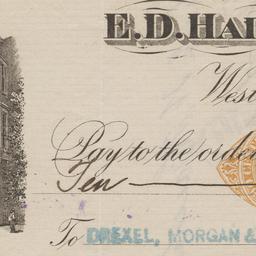 E.D. HAI
West
Pay to the order
Ten
To DREXEL, MORGAN &